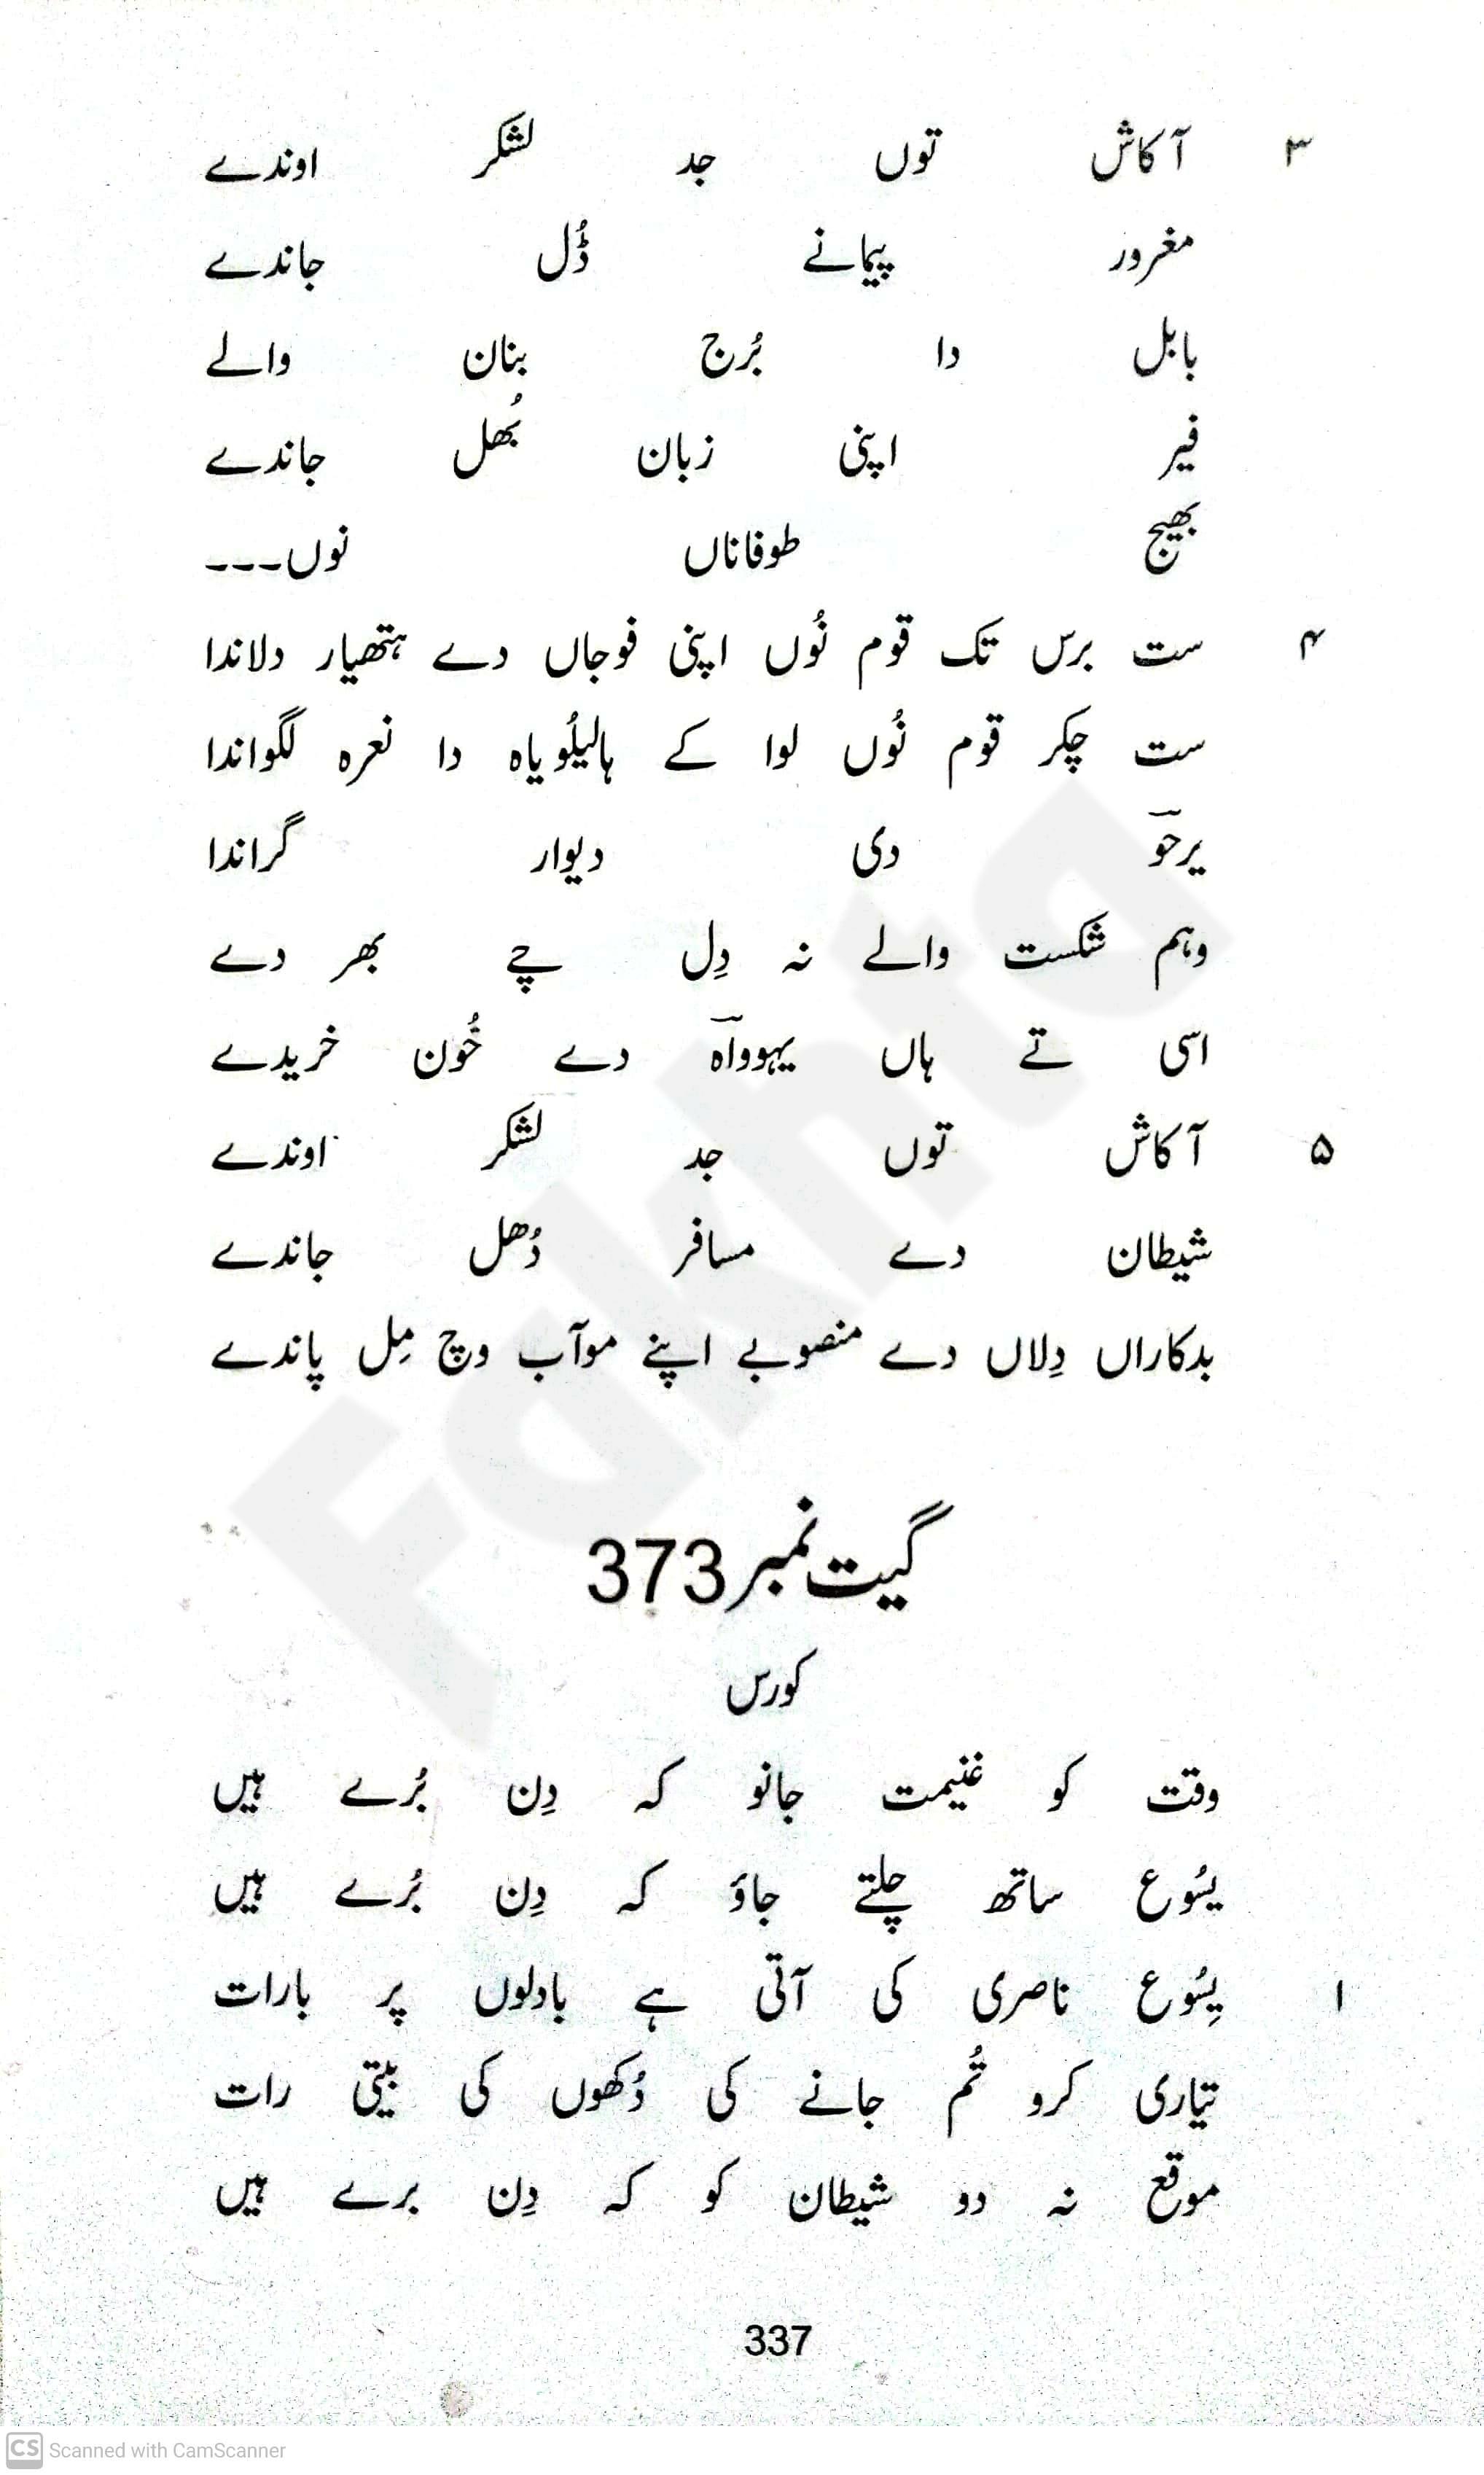 ۳ آکاش توں جد لشکر اوندے
مغرور پیمانے ڈُل جاندے
بابل دا بُرج بنان والے
فیر اپنی زبان بُھل جاندے
بھیج طوفاناں نوں۔۔۔
۴ ست برس تک قوم نُوں اپنی فوجاں دے ہتھیار دلاندا
ست چکر قوم نُوں لوا کے ہالیلُویاہ دا نعرہ لگواندا
یرحوؔ دی دیوار گراندا
وہم شکست والے نہ دِل چے بھر دے
اسی تے ہاں یہوواؔہ دے خُون خریدے
۵ آکاش توں جد لشکر اوندے
شیطان دے مسافر دُھل جاندے
بدکاراں دِلاں دے منصوبے اپنے موآب وچ مِل پاندے
گیت نمبر 373
کورس
وقت کو غنیمت جانو کہ دِن بُرے ہیں
یسُوع ساتھ چلتے جاؤ کہ دِن بُرے ہیں
۱ یِسُوع ناصری کی آتی ہے بادلوں پر بارات
تیّاری کرو تُم جانے کی دُکھوں کی بیتی رات
موقع نہ دو شیطان کو کہ دِن برے ہیں
337
Fakhta
CS Scanned with CamScanner